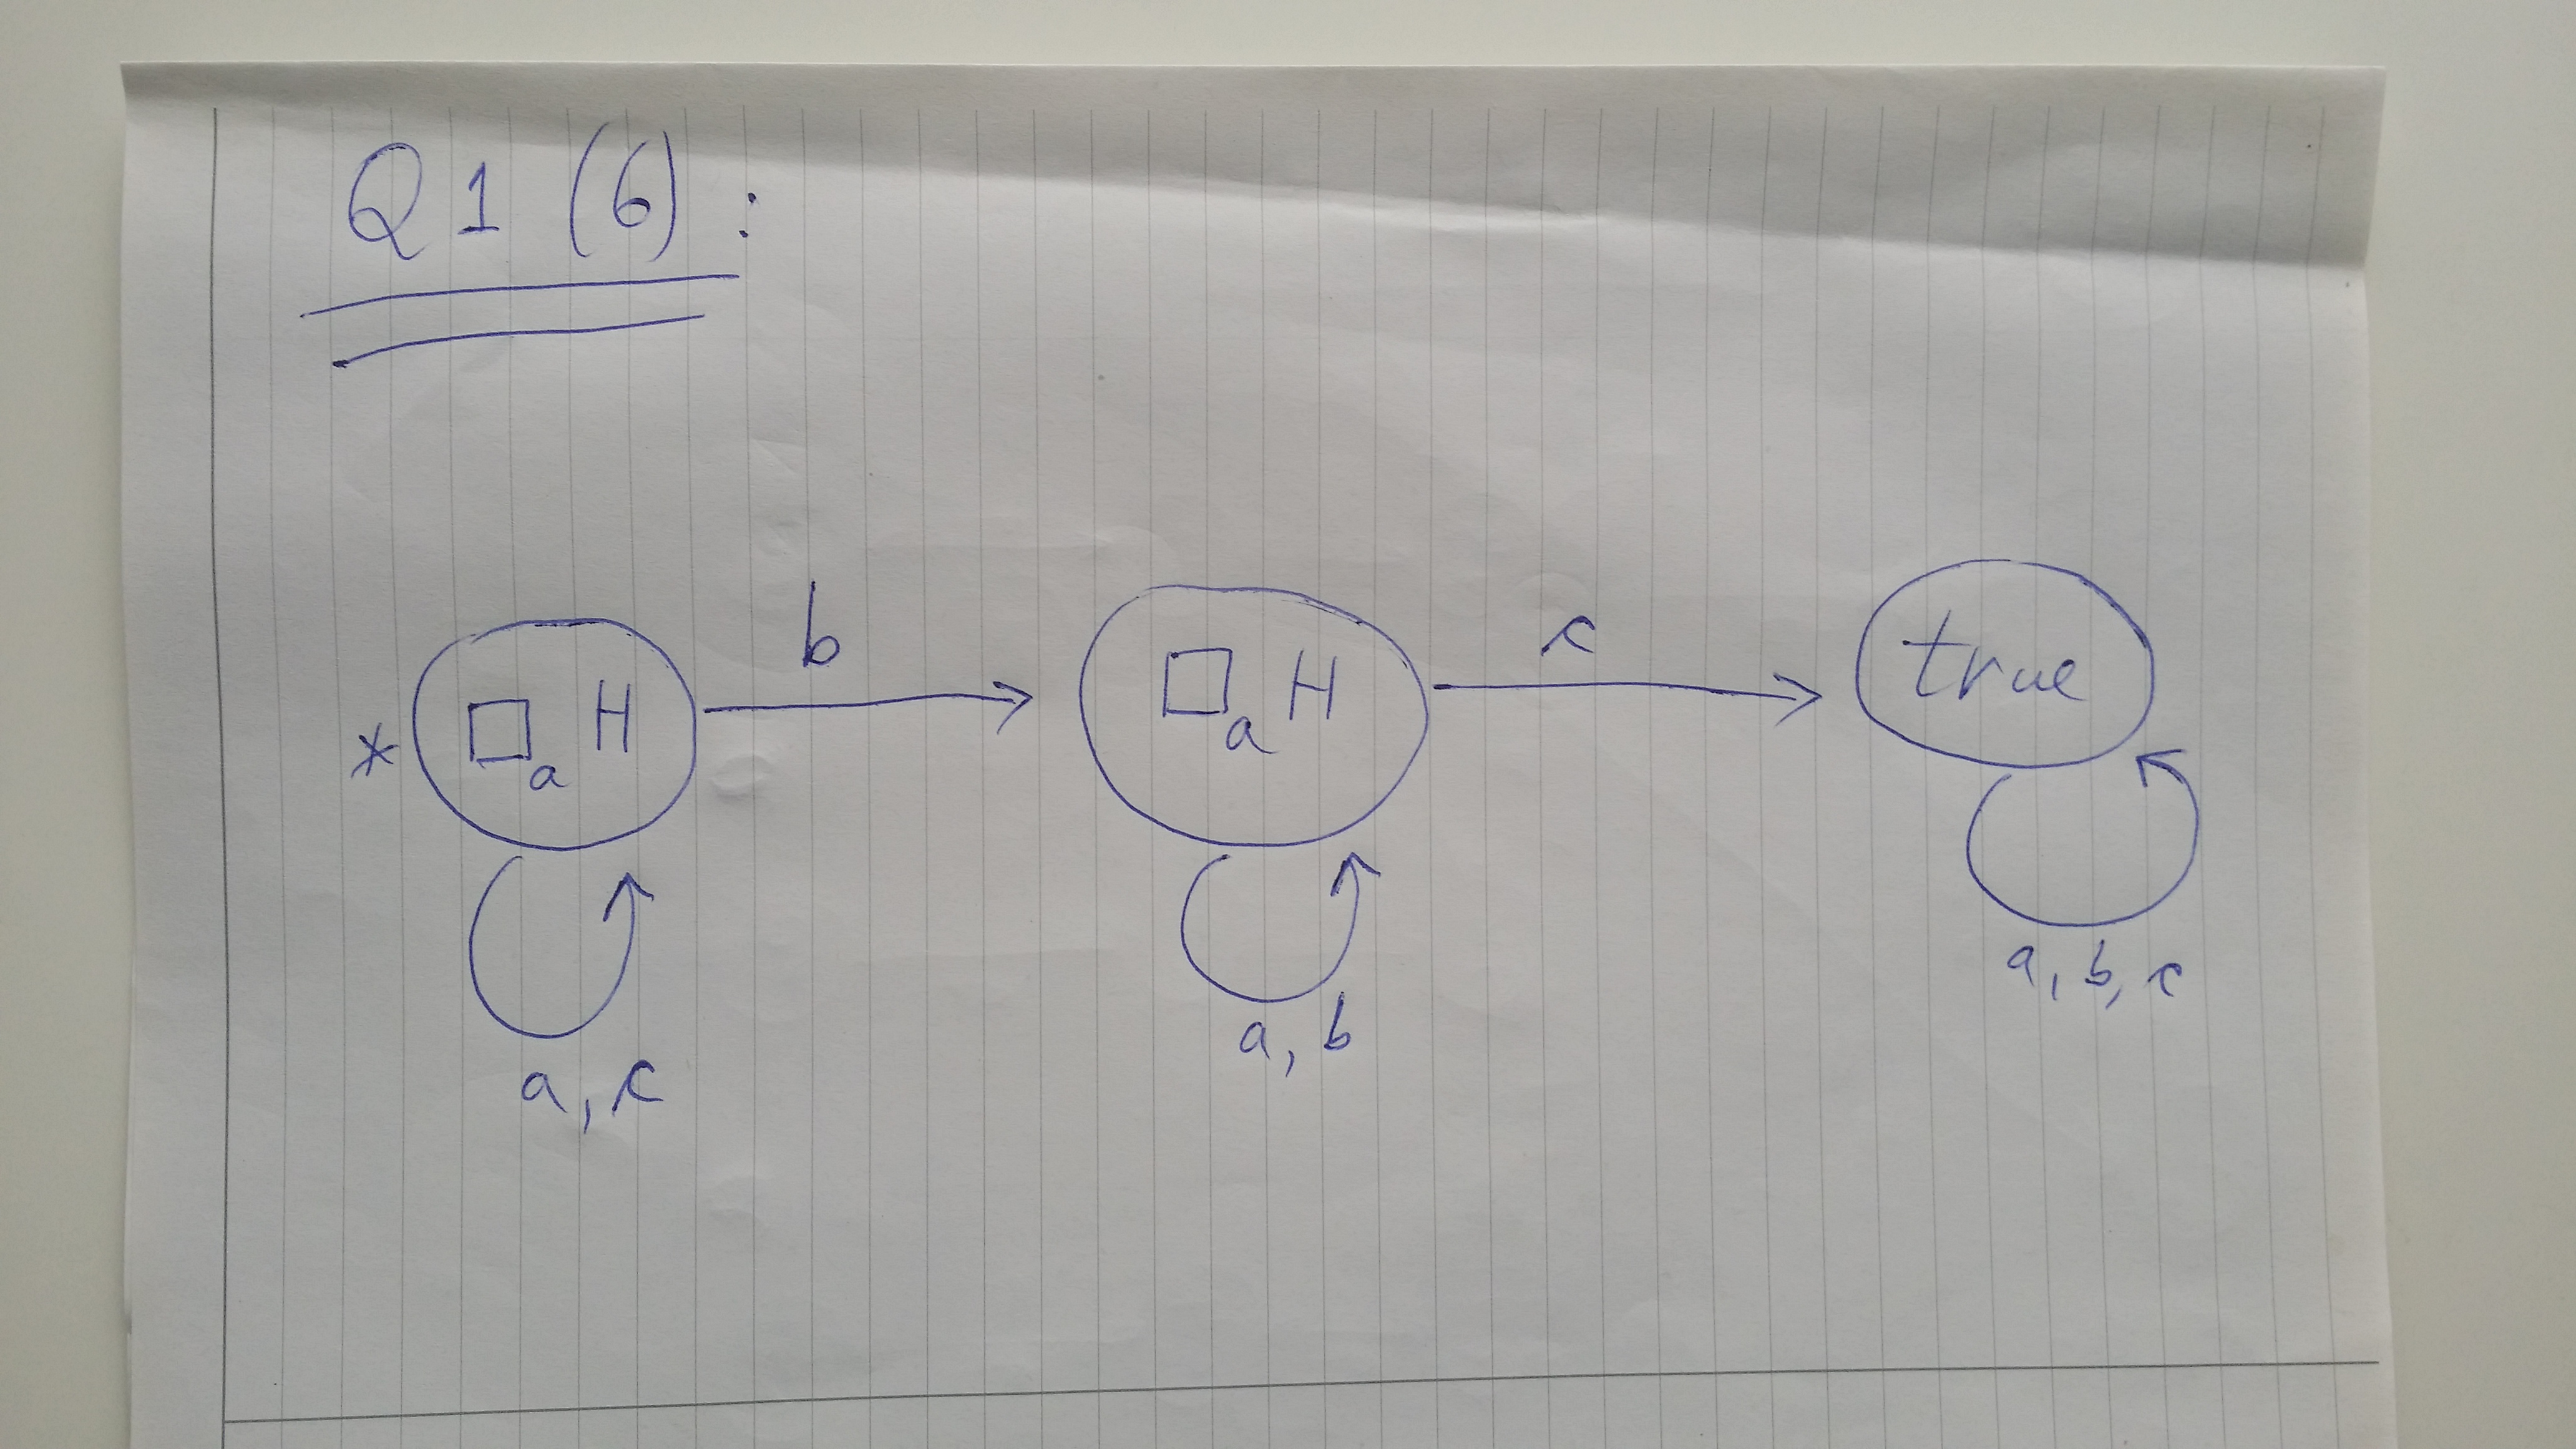 Q1 (6):
b
c
* □a H
□a H
true
a, c
a, b
a, b, c